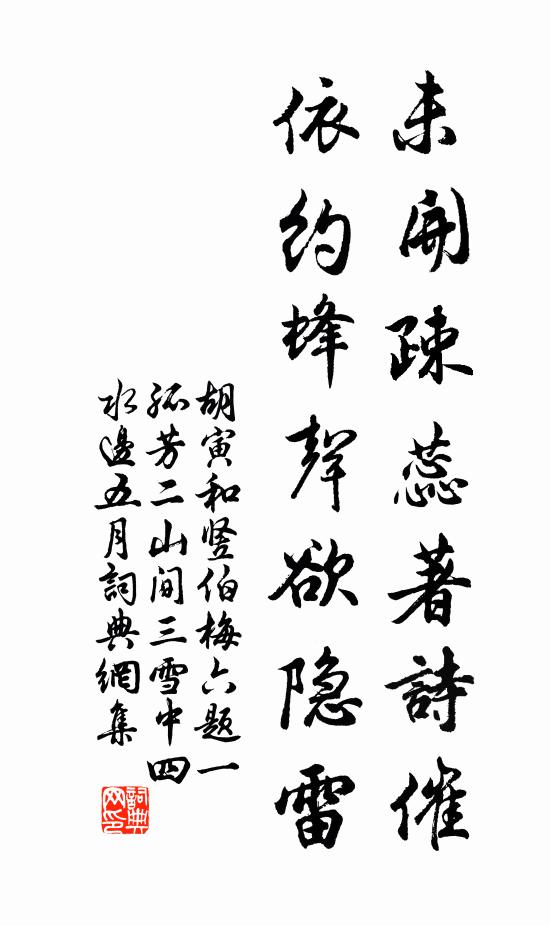 未開疎蕊著詩催
依約蜂聲欲隐雷
胡寅和竖伯梅六题一
孤芳二山间三雪中四
水邊五月詞典網集
詞典网印